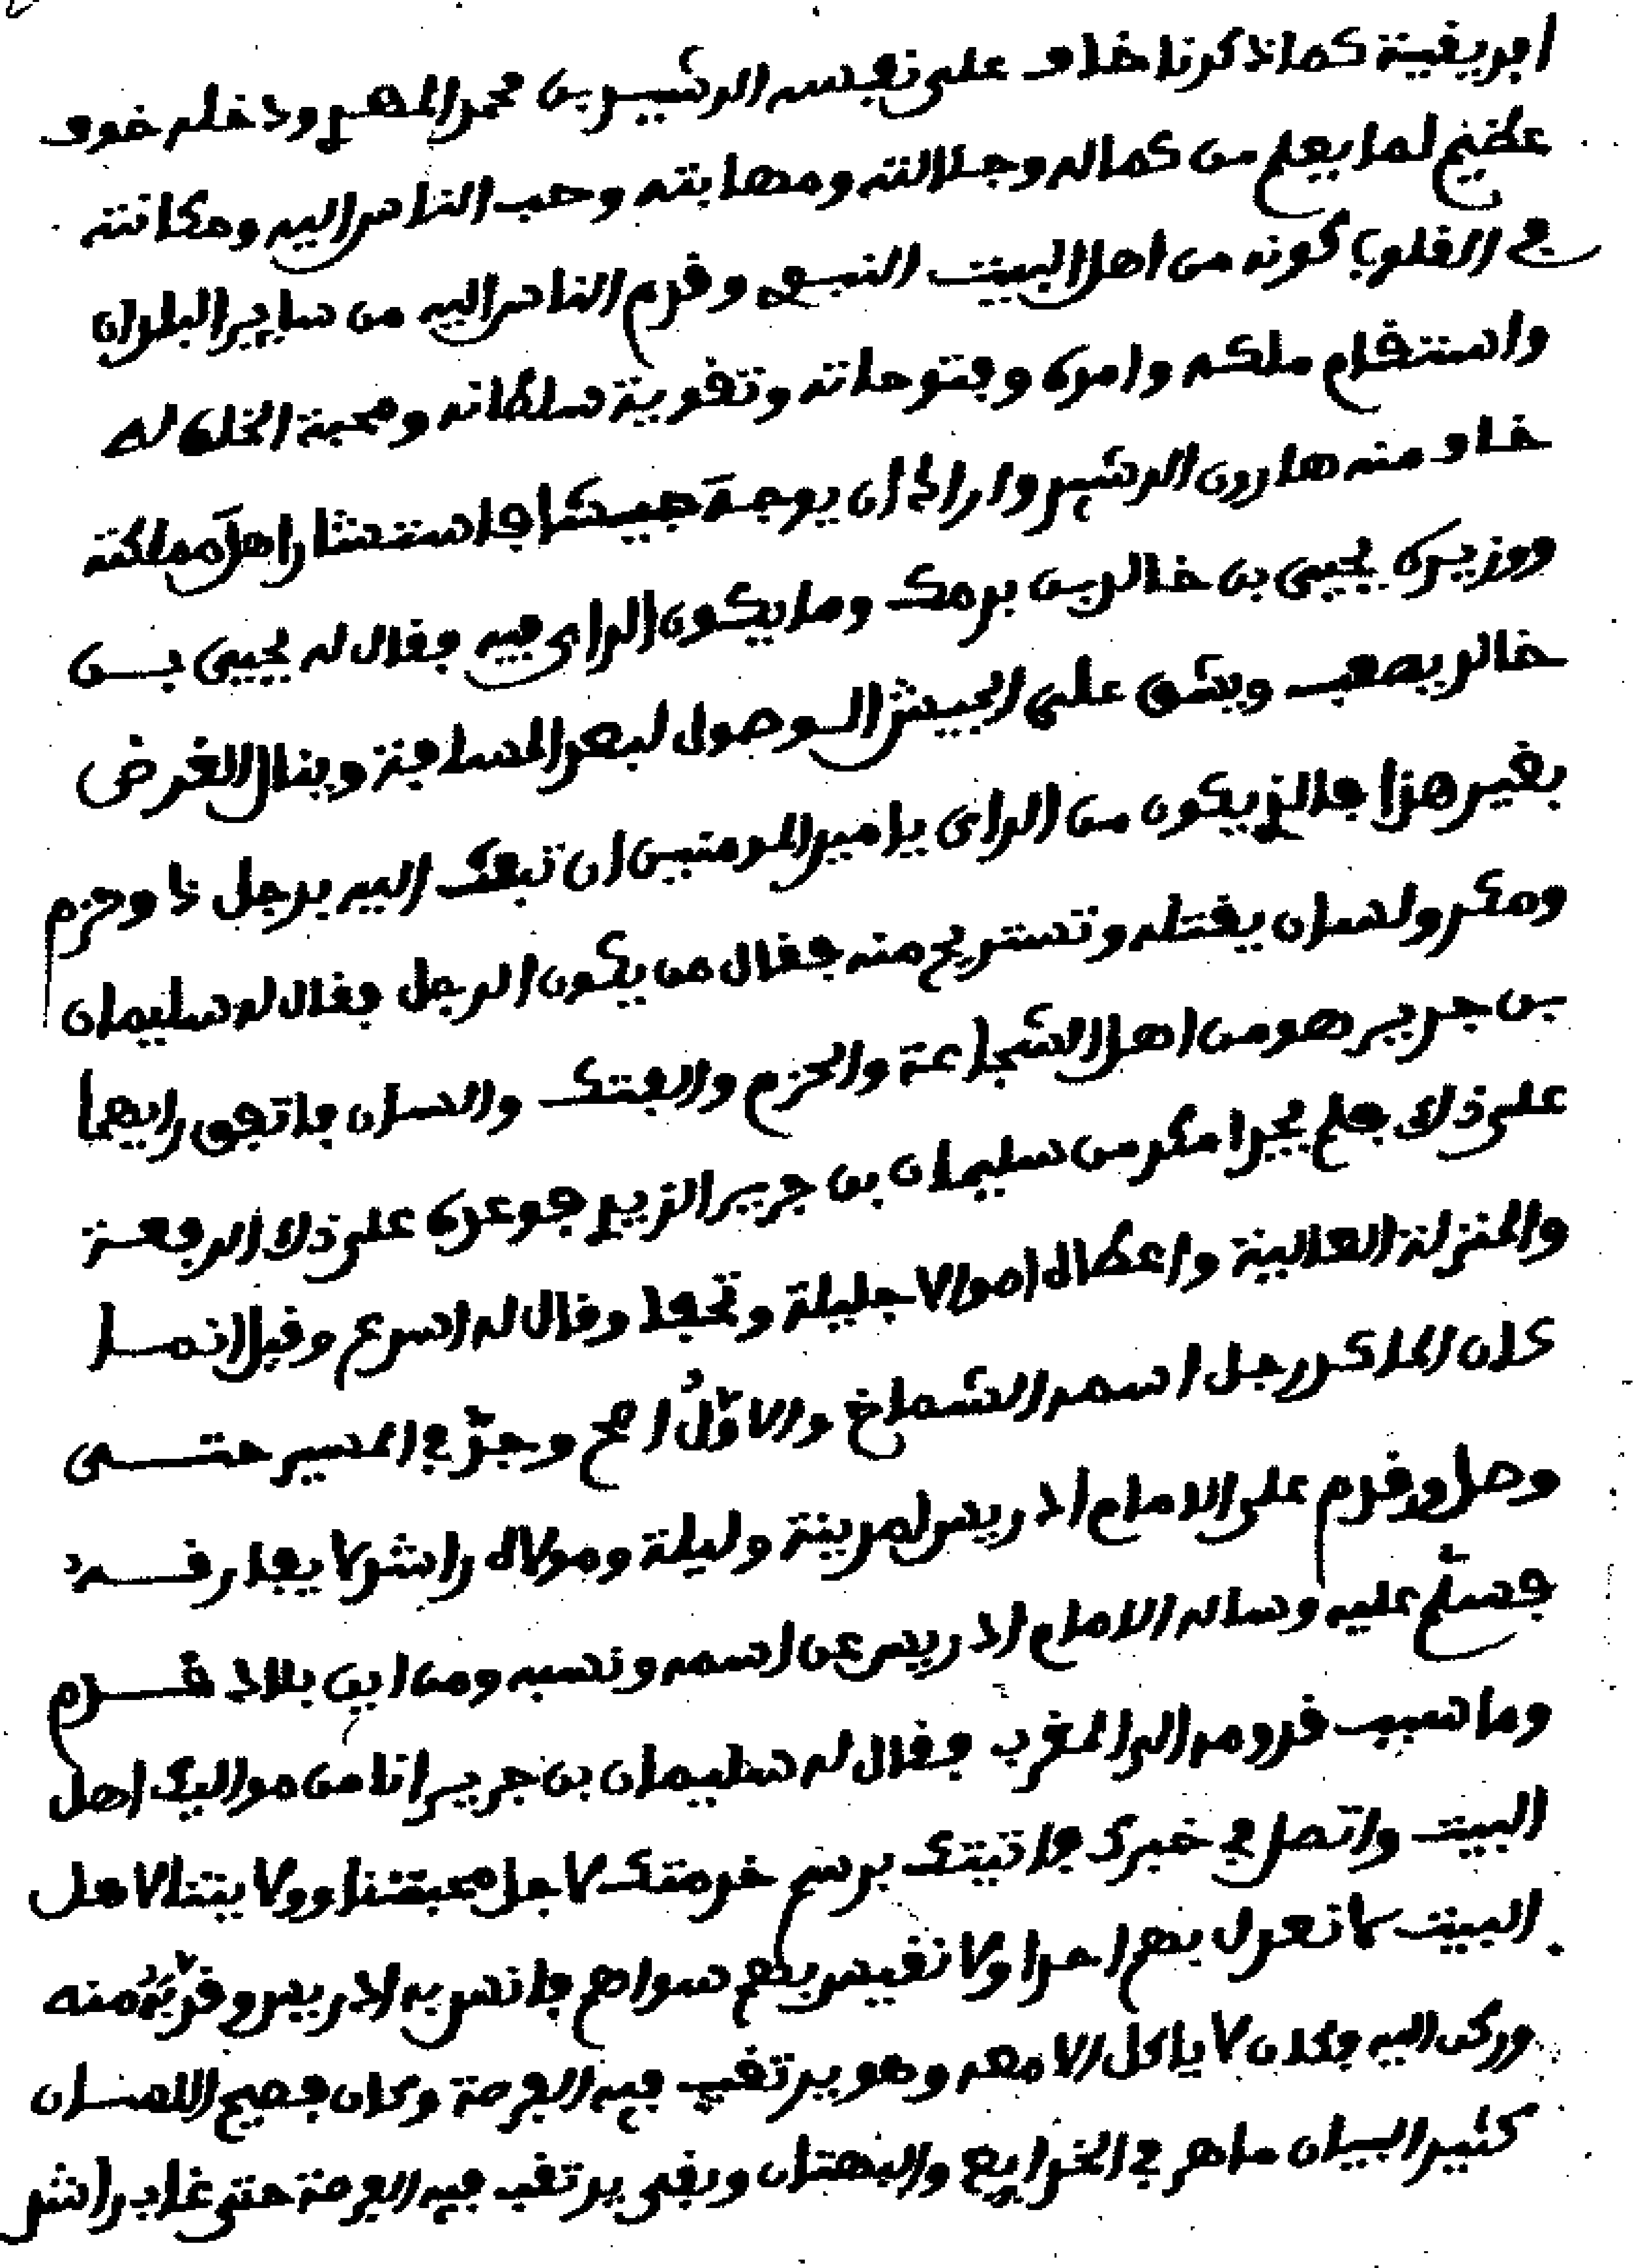 افريقية كما ذكرنا خاف على نفسه الرشيد بن محمد المهدي ودخله خوف
عظيم لما يعلم من كماله وجلالته ومهابته وحب الناس اليه ومكانته
في القلوب كونه من اهل البيت النبوي وقدم الناس اليه من ساير البلدان
واستقام ملكه وامره وفتوحاته وتقوية سلطانه ومحبة الخلق له
خاف منه هارون الرشيد واراد ان يوجه جيشا فاستشار اهل مملكته
ووزيره يحيى بن خالد بن برمك وما يكون الراي فيه فقال له يحيى بن
خالد يصعب ويشق على الجيش الوصول لبعد المسافة وينال الغرض
بغير هذا فالذي يكون من الراي يا امير المومنين ان تبعث اليه برجل ذا وحزم
ومكر ولسان يقتله وتستريح منه فقال من يكون الرجل فقال له سليمان
بن جرير هو من اهل الشجاعة والحزم والفتك والسان فاتفق رايهما
على ذلك فلم يجد امكر من سليمان بن جرير الزيدي فوعده على ذلك الرفعة
والمنزلة العالية واعطاه اموالا جليلة وتحفا وقال له اسرع وقيل انما
كان الماكر رجل اسمه الشماخ والاول اصح وجد في المسير حتى
وصل وقدم على الامام ادريس لمدينة وليلة ومولاه راشد لا يفارقه
فسلم عليه وساله الامام ادريس عن اسمه ونسبه ومن اين بلاد قدم
وما سبب قدومه الى المغرب فقال له سليمان بن جرير انا من مواليك اهل
البيت واتصل في خبرك فاتيتك برسم خدمتك لاجل محبتنا وولايتنا لاهل
البيت لا نعدل بهم احدا ولا نقيس بهم سواهم فانس به ادريس وقربه منه
وركن اليه وكان لا ياكل الا معه وهو يرتقب فيه الفرصة وكان فصيح اللسان
كثير البيان ماهر في الخدايع والبهتان وبقي يرتقب فيه الفرصة حتى غاب راشد